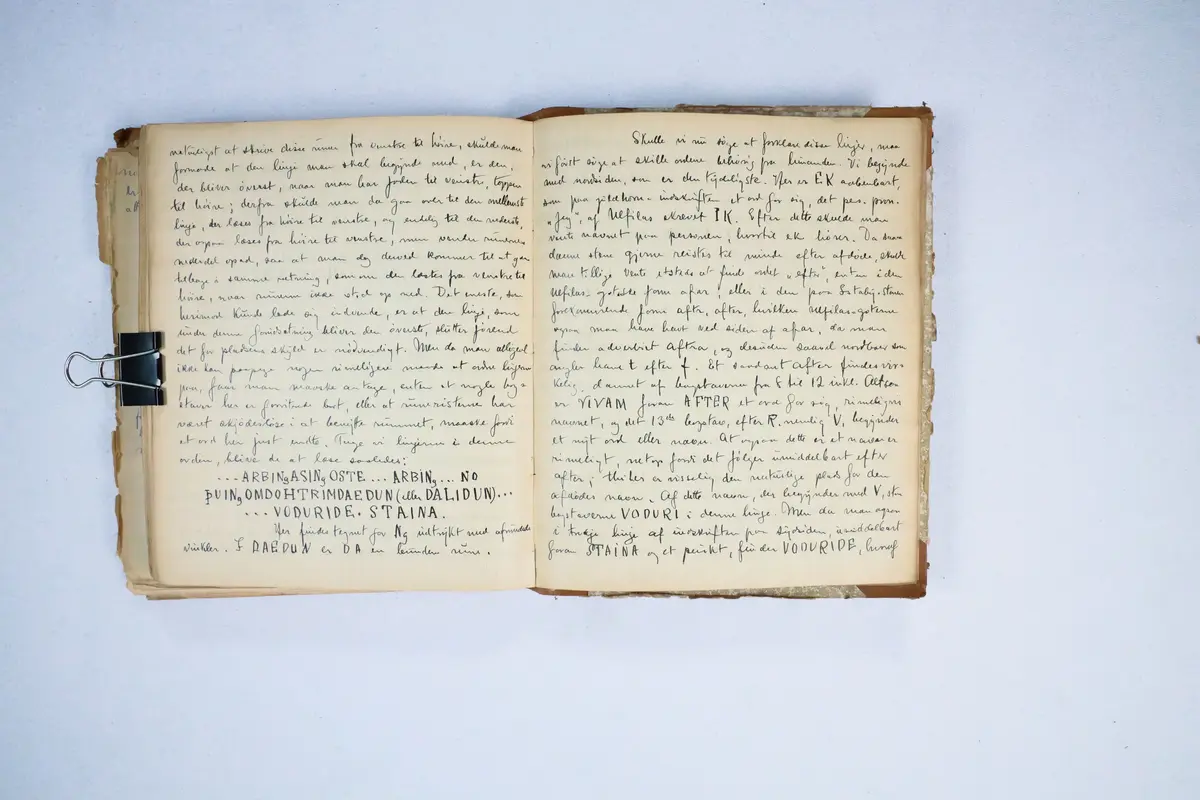 naturligst at skrive disse runer fra venstre til höire, skulde man
formode at den linje man skal begynde med, er den,
der bliver överst, naar man har foden til venstre, toppen
til höire; derfra skulde man da gaa over til den mellemste
linje, der löses fra höire til venstre, og endelig til den nederste,
der ogsaa löses fra höire til venstre, men vender runernes
nederdel opad, saa at man dog derved kommer til at gaa
tilbage i samme retning, som om den læstes fra venstre til
höire, naar runerne ikke stod op ned. Det eneste, som
herimod kunde lade sig indvende, er at den linje, som
under denne forudsætning bliver den överst, slutter förend
det for pladsens skyld er nödvendigt. Men da man alligevel
ikke kan paapege nogen rimeligere maade at ordne linjerne
paa, faar man maaske antage, enten at nogle bog-
staver her er forvitrede bort, eller at runeristerne har
været skjödeslöse i at benytte rummet, maaske fordi
et ord her just endte. Tage vi linjerne i denne
orden, blive de at læse saaledes:
... ARBINgASINgOSTE ... ARBINg ... NO
ÞUINgOMDOHTRIMDAEDUN (eller DALIDUN) ...
... VODURIDE. STAINA.
Her findes tegnet for Ng udtrykt med afrundede
vinkler. I DAEDUN er DA en bunden rune.
Skulle vi nu söge at forklare disse linjer, maa
vi först söge at skille ordene behörig fra hinanden. Vi begynde
med nordsiden, som er den tydeligste. Her er EK aabenbart,
som paa guldhorns-indskriften et ord for sig, det pers. pron.
"Jeg", af Ulfilas skrevet IK. Efter dette skulde man
vente navnet paa personen, hvortil ek hörer. Da saa-
danne stene gjerne reistes til minde efter afdöde, skulde
man tillige vente etsteds at finde ordet "efter", enten i den
Ulfilas-gotiske form afar, eller i den paa Istaby-stenen
forekommende form aftr, after, hvilken Ulfilas-goterne
ogsaa maa have havt ved siden af afar, da man
finder adverbiet aftra, og desuden saavel nordboer som
angler have t efter f. Et saadant AFTER findes vir-
kelig, dannet af bogstaverne fra 8 til 12 inkl. Altsaa
er VIVAM foran AFTER et ord for sig, rimeligvis
navnet, og det 13de bogstav, efter R, nemlig V, begynder
et nyt ord eller navn. At ogsaa dette er et navn er
rimeligt, netop fordi det fölger umiddelbart efter
after; thi her er visselig den naturlige plads for den
afdödes navn. Af dette navn, der begynder med V, staa
bogstaverne VODURI i denne linje. Men da man ogsaa
i tredje linje af indskriften paa sydsiden, umiddelbart
foran STAINA og et punkt, finder VODURIDE, hvoraf